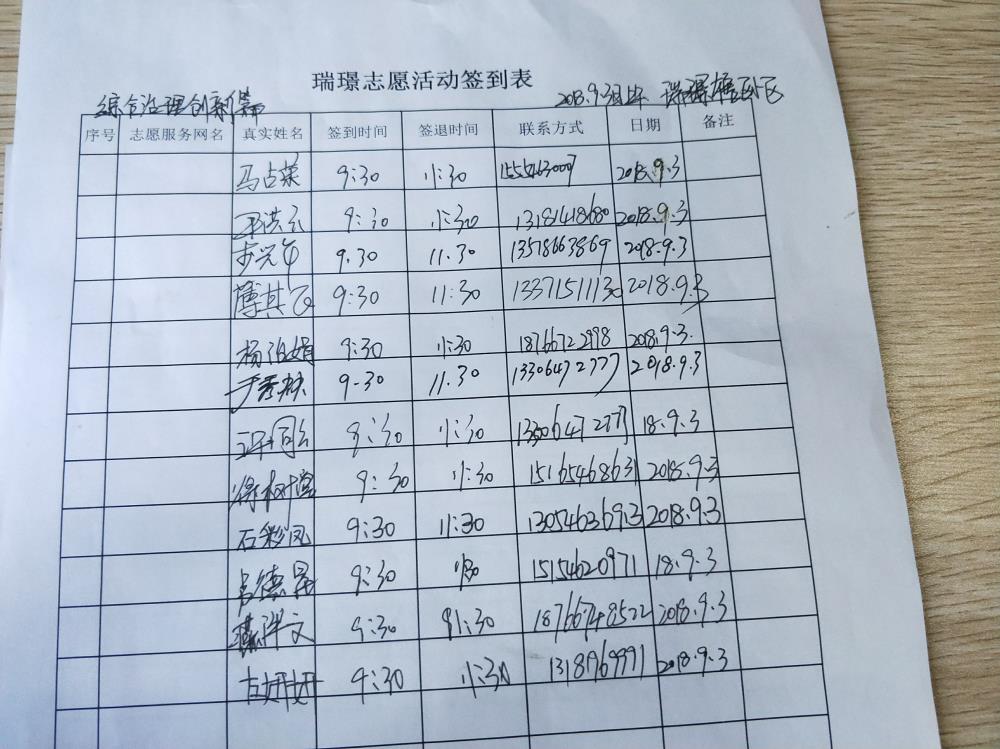 瑞璟志愿活动签到表
综合治理创新篇 2018.9.3
序号 志愿服务网名 真实姓名 签到时间 签退时间 联系方式 日期 备注
马占荣 9:30 11:30 2018.9.3
9:30 11:30 13181418680 2018.9.3
9.30 11.30 13578663869 2018.9.3
9:30 11:30 13371511130 2018.9.3
杨泊娟 9:30 11:30 18766722998 2018.9.3.
于秀林 9-30 11.30 13306472777 2018.9.3
9:30 11:30 13306472777 18.9.3
徐树堂 9:30 11:30 15165468631 2018.9.3
石彩凤 9:30 11:30 13054636913 2018.9.3
吕德昌 9:30 1130 15154620971 18.9.3
祥文 9:30 11:30 18766748522 2018.9.3
古妍妍 9:30 11:30 13189969991 2018.9.3